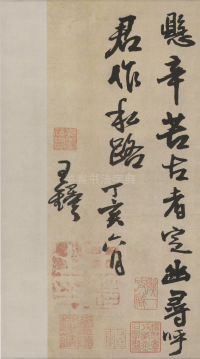 懸辛苦古者定幽尋呼
君作私路丁亥六月
王鐸